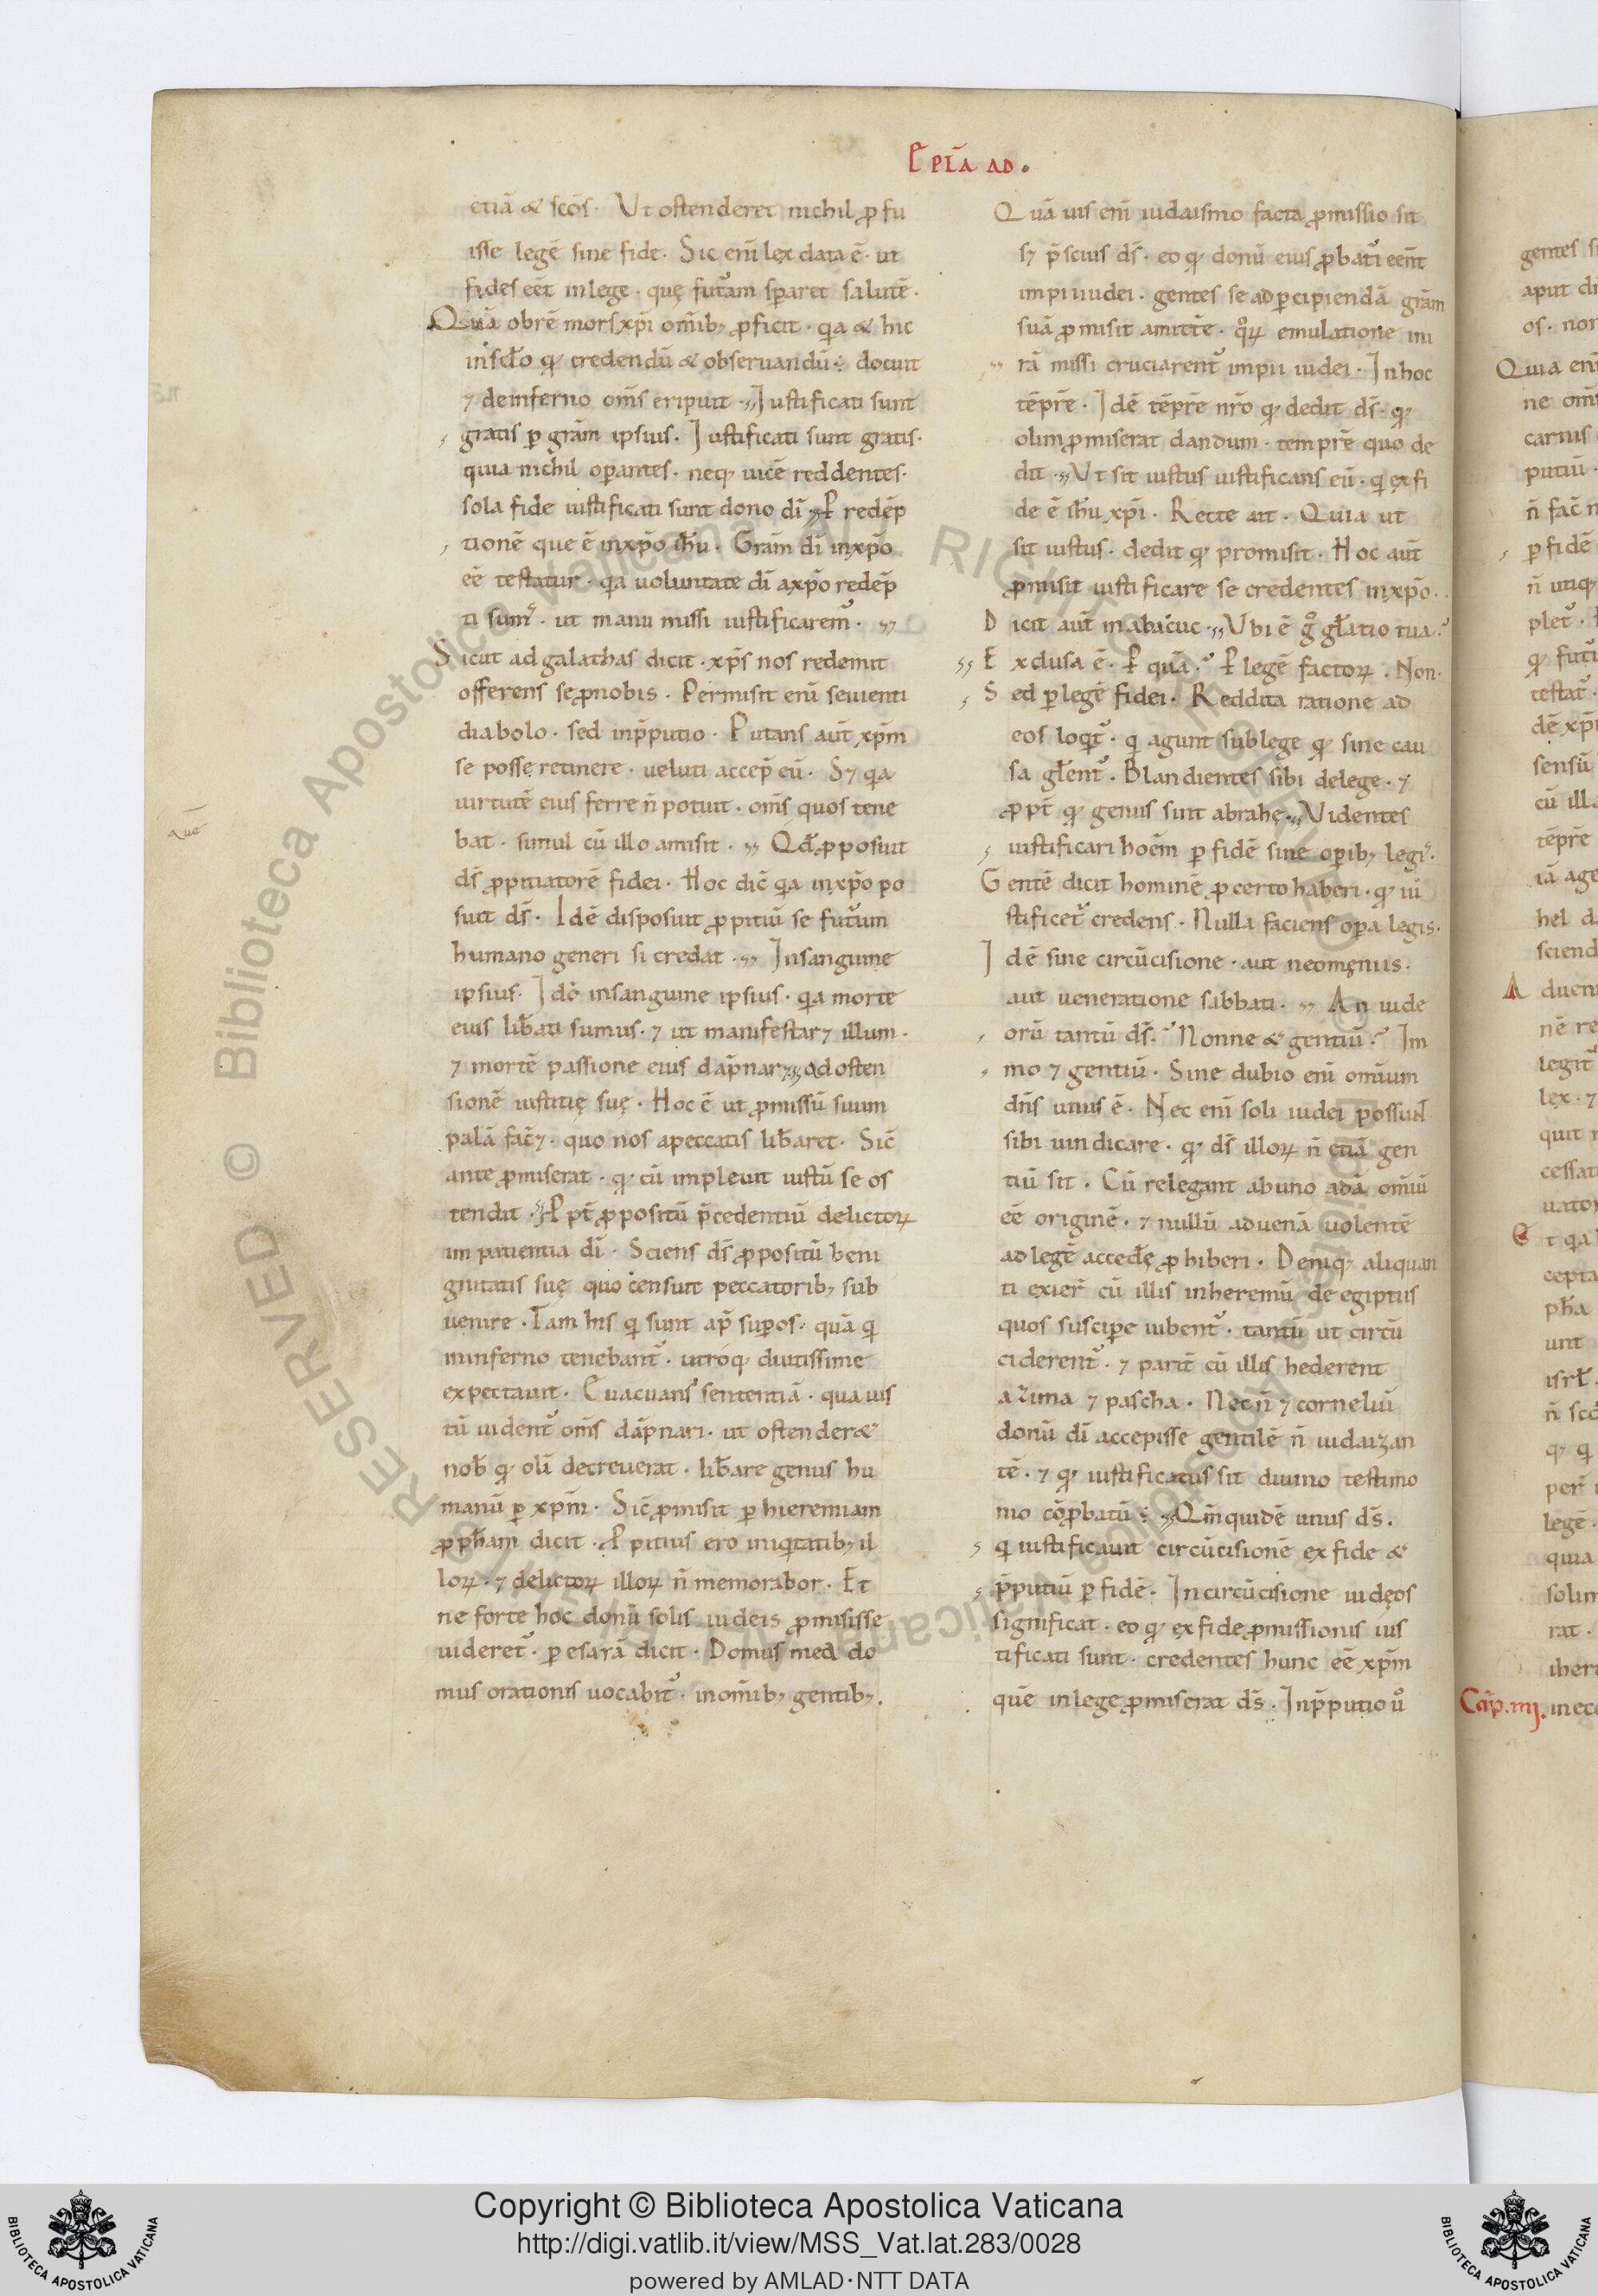 Eptɫa ad.
etiā & scōs. Vt ostenderet nichil ꝓfu
isse legē sine fide. Sic enī lex data ē. ut
fides eēt in lege. quę futᷣam sꝑaret salutē.
Quā obrē mors xp̄i om̄ib; ꝓficit. qͥa & hic
in scɫo qͥ credendū & obseruandū ÷ docuit
⁊ de inferno om̄s eripuit. Iustificati sunt
gratis ꝑ grām ipsius. Iustificati sunt gratis.
quia nichil oꝑantes. neq; uicē reddentes.
sola fide iustificati sunt dono dī. Ꝑ redēp
tionē que ē in xp̄o ih̄u. Grām dī in xp̄o
eē testatur. qͥa uoluntate dī a xp̄o redēp
ti sumꝰ. ut manu missi iustificaremᷣ.
Sicut ad galathas dicit. xp̄s nos redemit
offerens se ꝓ nobis. Permisit enī seuienti
diabolo. sed inp̄putio. Putans aut̄ xp̄m
se posse retinere. ueluti accep̄ eū. S; qͥa
uirtutē eius ferre n̄ potuit. om̄s quos tene
bat. simul cū illo amisit. Qd̄ ꝓposuit
ds̄ ꝓpitiatorē fidei. Hoc dic̄ qͥa in xp̄o po
suit ds̄. Idē disposuit ꝓpitiū se futᷣum
humano generi si credat. In sanguine
ipsius. Idō in sanguine ipsius. qͥa morte
eius lib̄ati sumus. ⁊ ut manifestar; illum.
⁊ mortē passione eius dāpnar;. Ad osten
sionē iustitię suę. Hoc ē ut ꝓmissū suum
palā fac̄;. quo nos a peccatis lib̄aret. Sic̄
ante ꝓmiserat. qͥ cū impleuit iustū se os
tendit. Ꝓpt̄ ꝓpositū p̄cedentiū delictoꝝ
in patientia dī. Sciens ds̄ ꝓpositū beni
gnitatis suę quo censuit peccatorib; sub
uenire. Tam his qͥ sunt ap̄ suꝑos. quā qͥ
in inferno tenebantᷣ. utroq; diutissime
expectauit. Euacuans sententiā. qua ius
tū uidentᷣ om̄s dāpnari. ut ostender&
nob̄ qͥ olī decreuerat. lib̄are genus hu
manū ꝑ xp̄m. Sic̄ ꝓmisit ꝑ hieremiam
ꝓph̄am dicit. Ꝓpitius ero iniqͥtatib; il
loꝝ. ⁊ delictoꝝ illoꝝ n̄ memorabor. Et
ne forte hoc donū solis iudeis ꝓmisisse
uideretᷣ. ꝑ esaiā dicit. Domus mea do
mus orationis uocabitᷣ. in om̄ib; gentib;.
Quā uis enī iudaismo facta ꝓmissio sit
s; p̄scius ds̄. eo qͥ donū eius ꝓbatᷣi eēnt
impii iudei. gentes se ad ꝑcipiendā grām
suā ꝓmisit amitte. qͦꝝ emulatione in i
rā missi cruciarentᷣ impii iudei. In hoc
tēpr̄e. Idē tēpr̄e nr̄o qͥ dedit ds̄. qͥ
olim ꝓmiserat dandum. tempr̄e quo de
dit. Vt sit iustus iustificans eū. qͥ ex fi
de ē ih̄u xp̄i. Recte ait. Quia ut
sit iustus. dedit qͥ promisit. Hoc aut̄
ꝓmisit iustificare se credentes in xp̄o.
Dicit aut̄ in abacuc. Vbi ē gͦ gɫatio tua?
Exclusa ē. Ꝑ quā? Ꝑ legē factoꝝ. Non.
Sed ꝑ legē fidei. Reddita ratione ad
eos loqͥtᷣ. qͥ agunt sub lege qͥ sine cau
sa gɫentᷣ. Blandientes sibi de lege. ⁊
ꝓpt̄ qͥ genus sint abrahę. Videntes
iustificari hoēm ꝑ fidē sine oꝑib; legiˢ.
Gentē dicit hominē ꝓ certo haberi. qͥ iu
stificetᷣ credens. Nulla faciens oꝑa legis.
Idē sine circūcisione. aut neomęniis.
aut ueneratione sabbati. An iude
orū tantū ds̄? Nonne & gentiū? Im
mo ⁊ gentiū. Sine dubio enī omīum
dn̄s unus ē. Nec enī soli iudei possunt
sibi uindicare. qͥ ds̄ illoꝝ n̄ etiā gen
tiū sit. Cū relegant ab uno adā omīū
eē originē. ⁊ nullū aduenā uolentē
ad legē accedę ꝓhiberi. Deniq; aliquan
ti exier̄ cū illis in heremū de egiptus
quos susciꝑe iubentᷣ. tantū ut circū
ciderentᷣ. ⁊ parit̄ cū illis hederent
azima ⁊ pascha. Nec n̄ ⁊ corneliū
donū dī accepisse gentilē n̄ iudaizan
tē. ⁊ qͥ iustificatus sit diuino testimo
nio cōꝓbatū ÷. Qm̄ quidē unus ds̄.
qͥ iustificauit circūcisionē ex fide &
p̄putiū ꝑ fidē. In circūcisione iudęos
significat. eo qͥ ex fide ꝓmissionis ius
tificati sunt. credentes hunc eē xp̄m
quē in lege ꝓmiserat ds̄. In p̄putio uͦ
gentes
aput
os. non
Quia enī
ne
carnis
putiū
ꝑ fidē
plet
testat
sensū
cū
iā
hel
sciend
Aduen
nē
lex. ⁊
quit
cessat
cepta
unt
legē
quia
rat.
Cap̄. iiij.
Copyright © Biblioteca Apostolica Vaticana
http://digi.vatlib.it/view/MSS_Vat.lat.283/0028
powered by AMLAD·NTT DATA
BIBLIOTECA APOSTOLICA VATICANA
BIBLIOTECA APOSTOLICA VATICANA